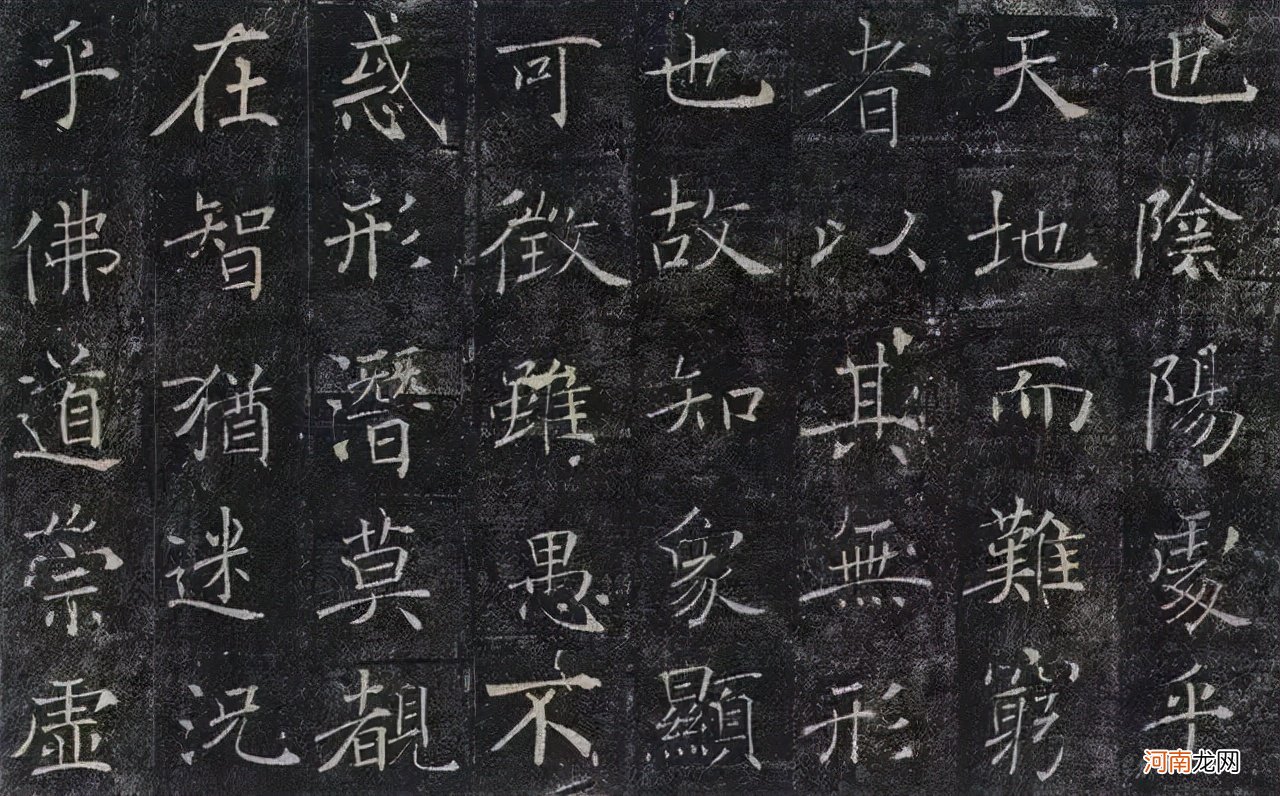 也陰陽處乎
天地而難窮
者以其無形
也故知象顯
可徵雖愚不
惑形潛莫覩
在智猶迷況
乎佛道崇虛
河南龙网